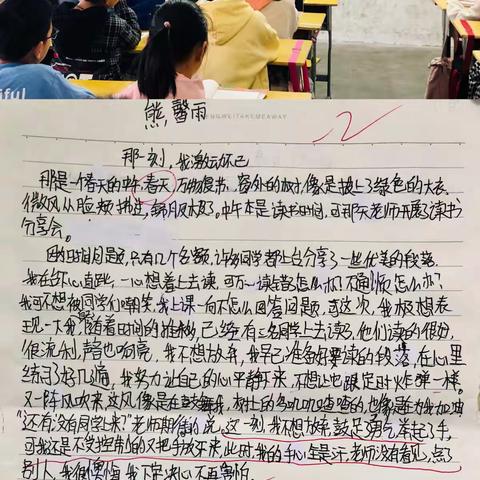 熊馨雨
ENGWEITAKEMEAWAY
那一刻,我激动不已
那是一个春天的中午,春天,万物复苏,窗外的树像是披上了绿色的大衣,
微风从脸颊拂过,舒服极了。中午本是读书时间,可那天老师开展了读书
分享会。
因为时间是,只有几个名额,许多同学都上台分享了一些优美的段落。
我在心里,一心想着上去读,可万一读错怎么办?不通顺怎么办?
我可不想被同学们嘲笑,我上课一向不怎么回答问题,可这次,我极想表
现一下我,随着时间的推移,已经有三名同学上去读了,他们读的很好,
很流利,声音也响亮,我不想放弃,我早已准备好要读的段落,在心里
练习了好几遍,我努力让自己的心平静下来,不想让它跟定时炸弹一样。
又一阵风吹来,这风像是在鼓舞我,树上的鸟叽叽喳喳的,也像是在为我加油
"还有没有同学上来?"老师期待的说,这一刻我不想放弃,鼓足勇气举起了手,
可我还是不受控制的又把手放下来,此时,我的手心全是汗,老师没有看见,点了
别人,我很懊悔,我下定决心不再害怕。